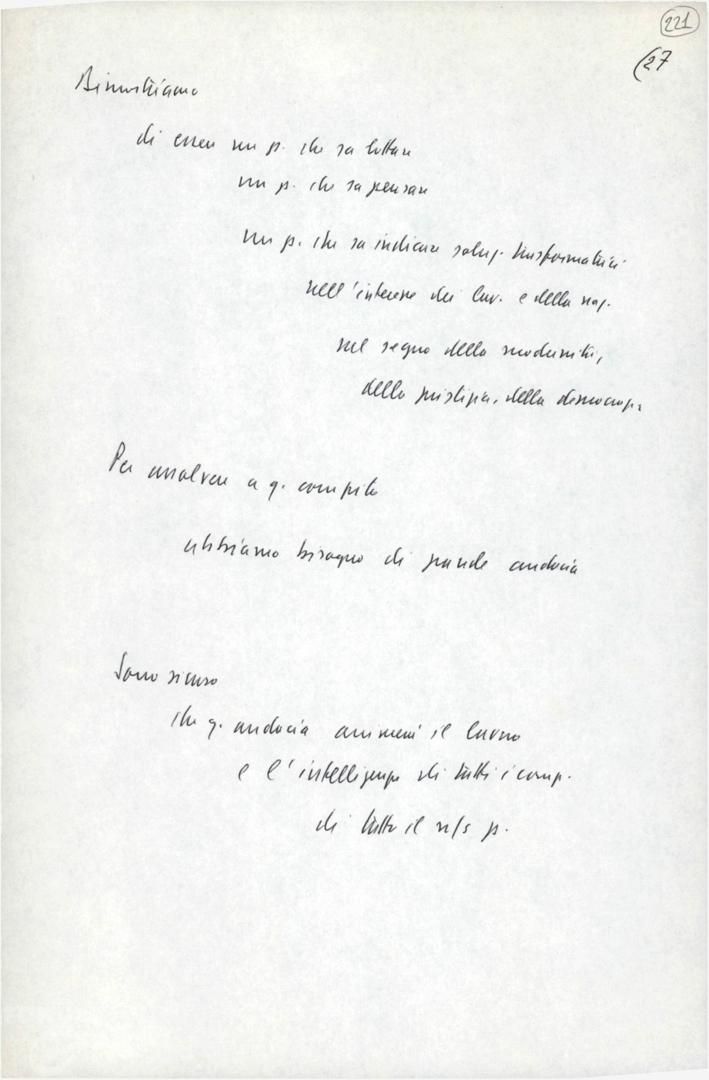 221
(27
Dimostriamo
di essere un p. che sa lottare
un p. che sa pensare
un p. che sa indicare soluz. trasformatrici
nell'interesse dei lav. e della naz.
nel segno della modernità,
della giustizia, della democraz.
Per assolvere a q. compito
abbiamo bisogno di grande audacia
Sono sicuro
che q. audacia animerà il lavoro
e l'intelligenza di tutti i comp.
di tutto il n/s p.